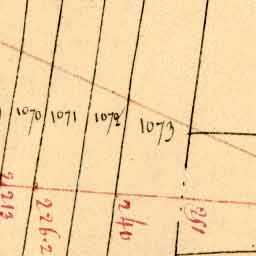 1070
1071
1072
1073
213
226.2
240
251